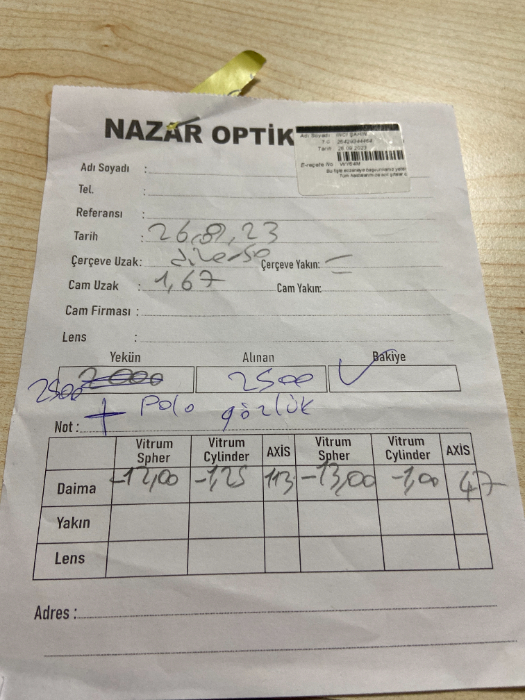 NAZAR OPTİK
Adı Soyadı
Tarih 26.08.2023
E-reçete No
Adı Soyadı :
Tel. :
Referansı :
Tarih : 26,8,23
Çerçeve Uzak: Çerçeve Yakın: —
Cam Uzak : 1,67 Cam Yakın:
Cam Firması :
Lens :
Yekün Alınan Bakiye
2500 2000 2500 ✓
+ Polo gözlük
Not :
Vitrum Spher Vitrum Cylinder AXİS Vitrum Spher Vitrum Cylinder AXİS
Daima -12,00 -1,25 113 -13,00 -1,00 47
Yakın
Lens
Adres :